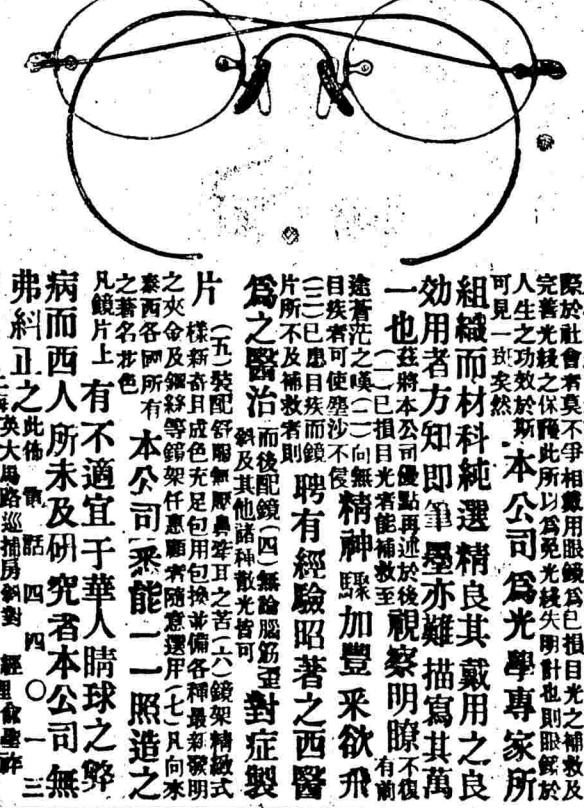 際於社會者莫不爭相戴用眼鏡爲已損目光之補救及
完善光綫之保護此所以爲免光綫失明計也則眼鏡於
人生之功效於斯
可見一班矣然
本公司爲光學專家所
組織而材料純選精良其戴用之良
効用者方知即筆墨亦難描寫其萬
一也
茲將本公司優點再述於後
(一)已損目光者能補救至
視察明瞭
不復
有前
途蒼茫之嘆(二)向無
目疾者可使塵沙不侵
精神驟加豐釆欲飛
(三)已患目疾而鏡
片所不及補救者則
聘有經驗昭著之西醫
爲之醫治
而後配鏡(四)無論腦筋歪
斜及其他諸种散光皆可
對症製
片
(五)裝配舒服無壓鼻聳耳之苦(六)鏡架精緻式
樣新奇且成色充足包用包換並備各種最新發明
之夾金及鋼絲等鏡架任惠顧者隨意選用(七)凡向來
泰西各國所有
之著名花色
本公司悉能一一照造之
凡鏡片上
有不適宜于華人睛球之弊
病而西人所未及研究者本公司無
弗糾正之
此佈
電話四四〇一三
英大馬路巡捕房斜對
經理